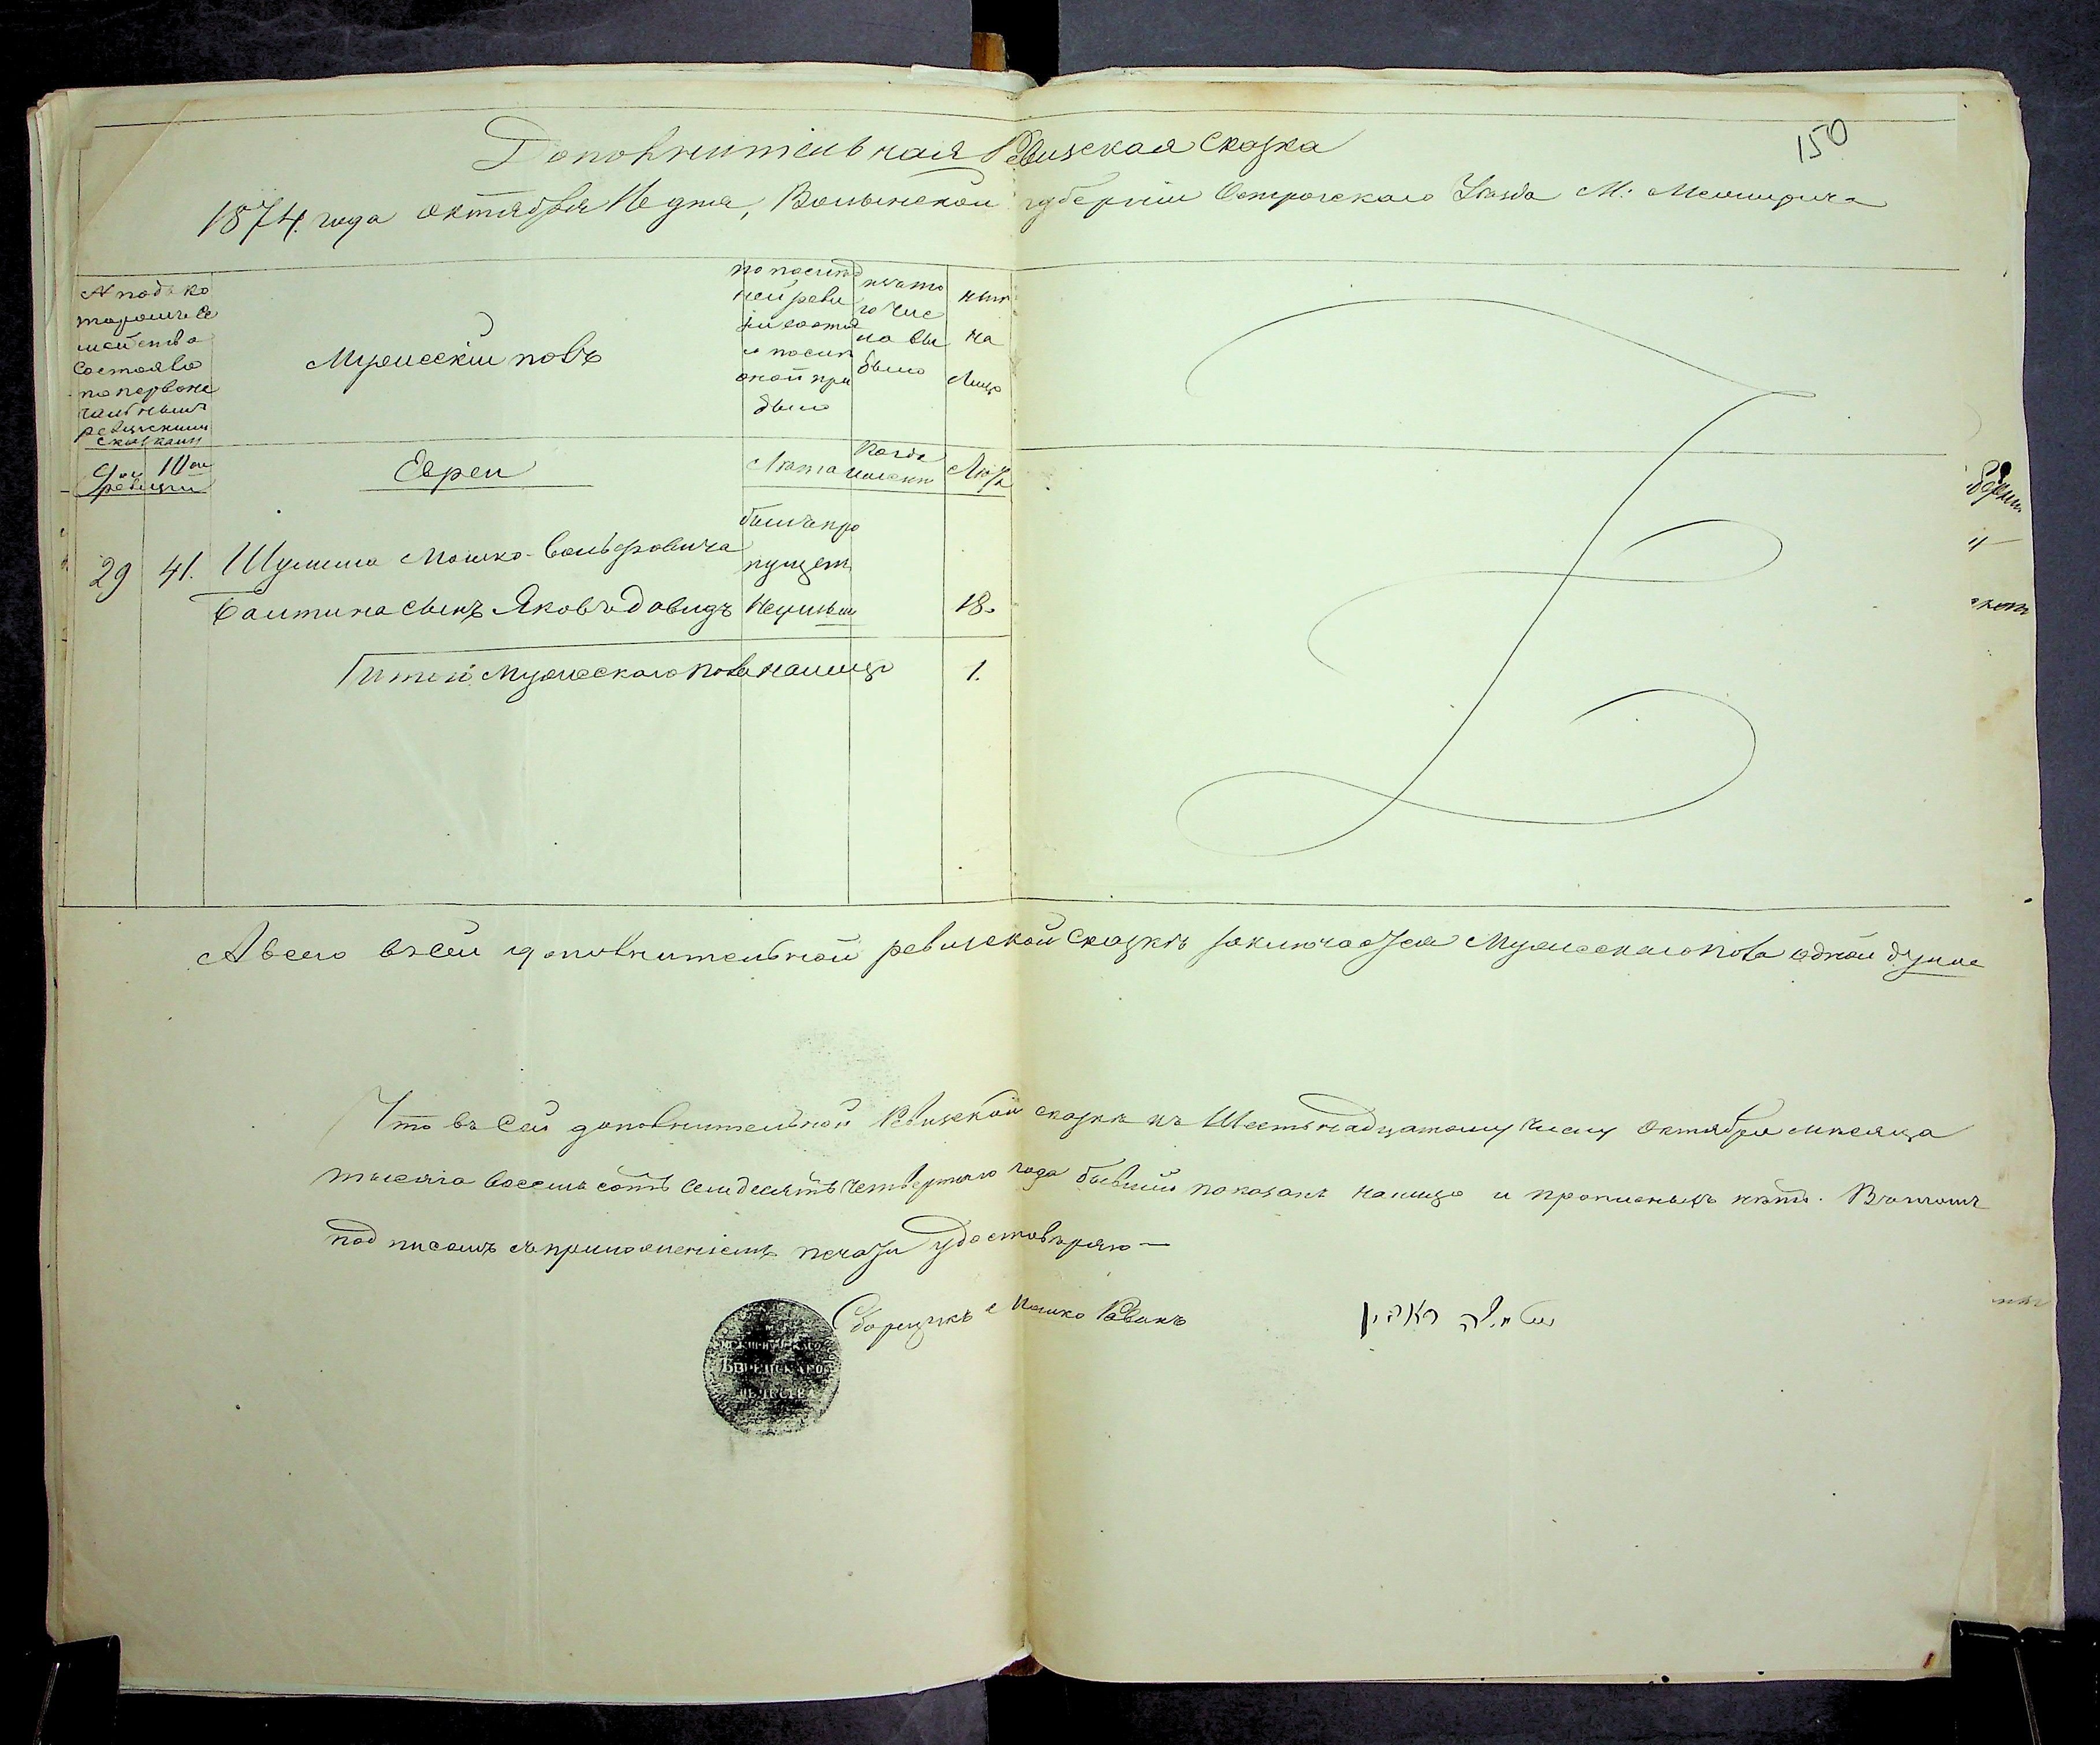 150
Дополнительная Ревизская Сказка
1874. года октября 16 дня, Волынской губернии Острогскаго Уѣзда М: Межирича
№ подъ ко
торымъ се
мейство
состояло
по первона
чальнымъ
ревизскимъ
сказкамъ
Мужескій полъ
по послѣд
ней реви
зіи состоя
ло и послѣ
оной при
было
изъ то
го чис
ла вы
было
нынѣ
на
лицо
9ой 10ой
ревизіи
Евреи
Лѣта
Когда
именно
Лѣта
29 41. Шулима Мошко-Вольфовича
былъ про
пущенъ
Балтина сынъ Яковъ Давидъ 18.
Итого Мужескаго пола налицо 1.
А всего въ сей дополнительной ревизской сказкѣ заключается Мужескаго пола одной душе
Что въ сей дополнительной Ревизской сказкѣ къ Шестьнадцатому числу октября мѣсяца
тысяча восемь сотъ семдесятъ четвертаго года бывшій показанъ налицо и прописныхъ нѣтъ. В томъ
подписомъ съ приложеніемъ печати удостовѣряю —
Сборщикъ Рабинъ
ЕВРЕЙСКАГО
ОБЩЕСТВА